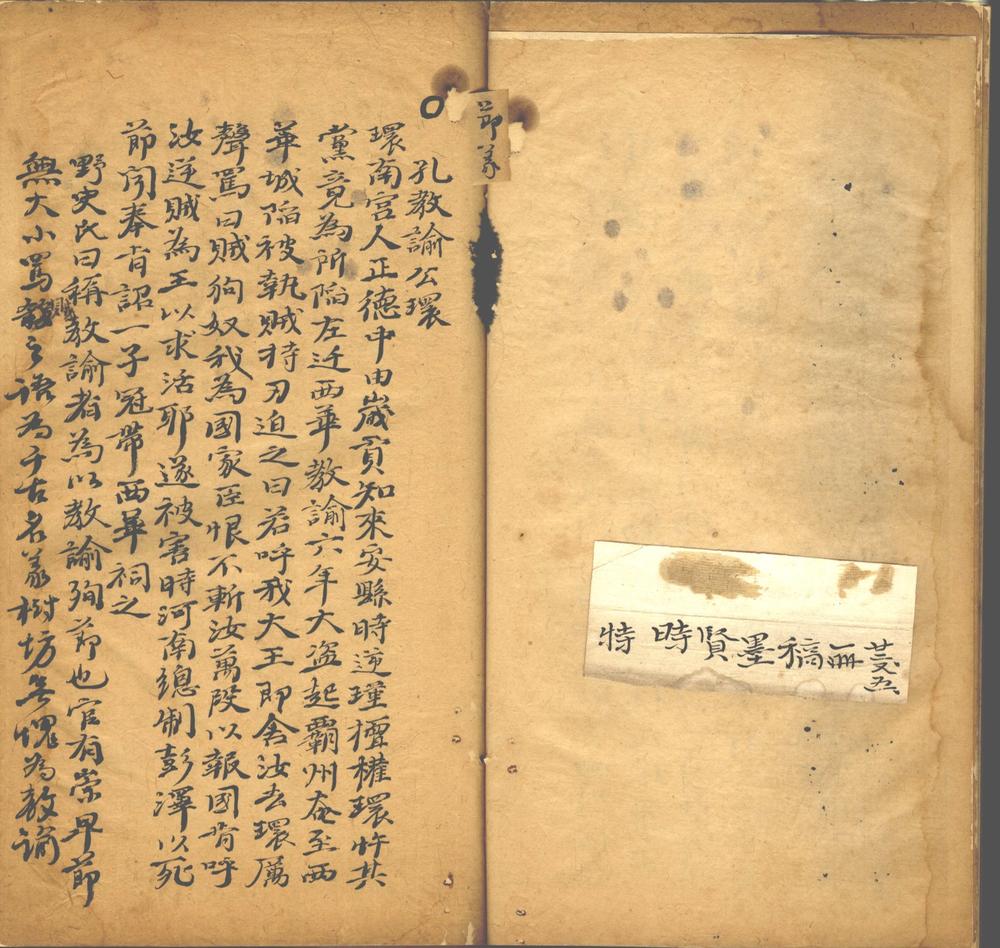 特 時賢墨稿一冊
節義
孔教諭公環
環南宮人正德中由歲貢知來安縣時逆瑾擅權環忤其
黨竟為所陷左迁西華教諭六年大盜起霸州奄至西
華城陷被執賊持刃迫之曰若呼我大王即舍汝去環厲
聲罵曰賊狗奴我為國家臣恨不斬汝萬段以報國肯呼
汝逆賊為王以求活耶遂被害時河南總制彭澤以死
節聞奉旨詔一子冠帶西華祠之
野史氏曰稱教諭者為以教諭殉節也官有崇卑節
無大小罵賊之語為千古名義樹坊無愧為教諭